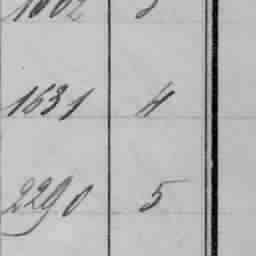 1631 4
2290 5